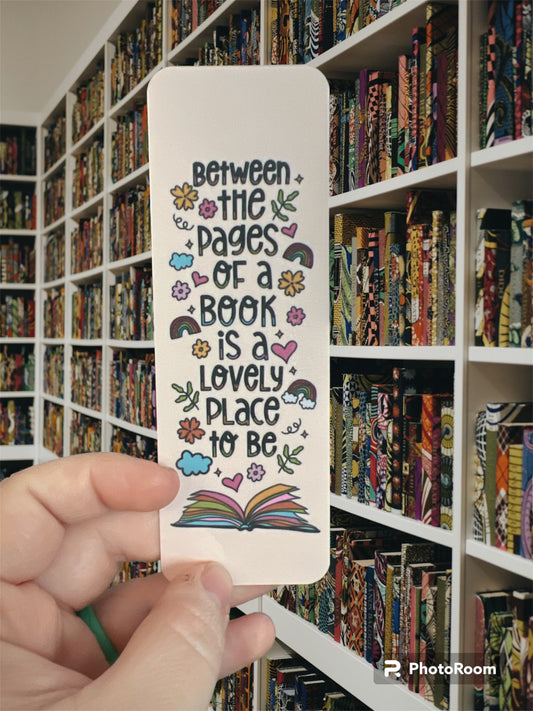 Between
the
pages
of a
Book
is a
lovely
place
to be
PhotoRoom